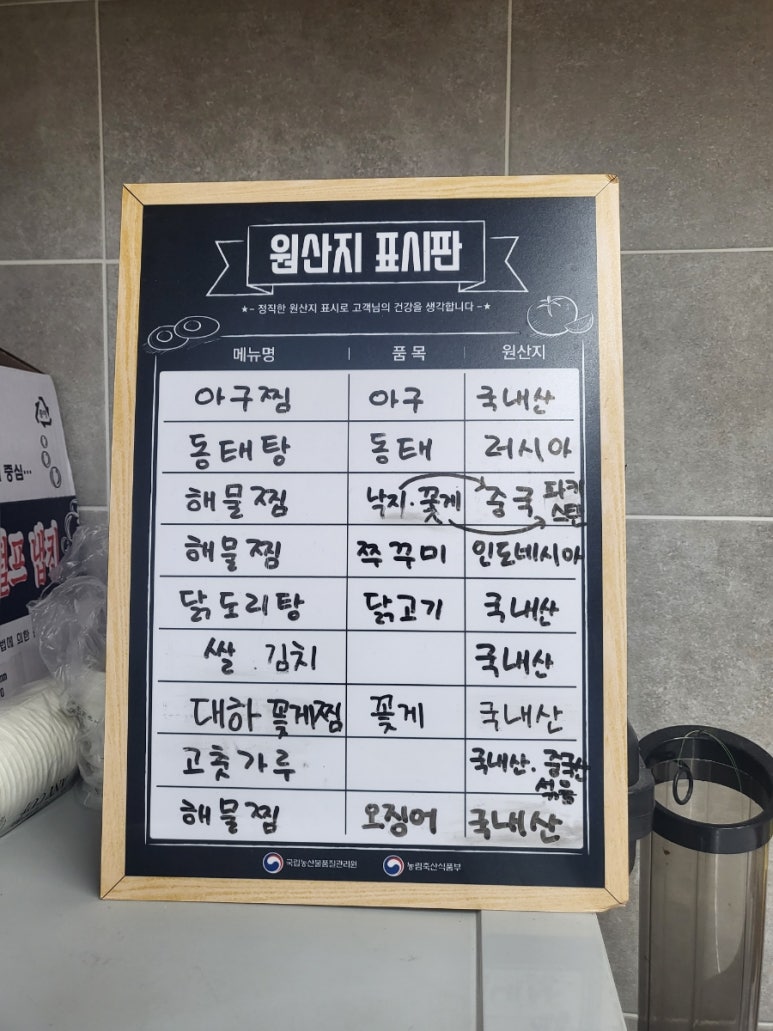 원산지 표시판
★- 정직한 원산지 표시로 고객님의 건강을 생각합니다 -★
메뉴명 | 품 목 | 원산지
아구찜 아구 국내산
동태탕 동태 러시아
해물찜 낙지.꽃게 중국 파키스탄
해물찜 쭈꾸미 인도네시아
닭도리탕 닭고기 국내산
쌀 김치 국내산
대하꽃게찜 꽃게 국내산
고춧가루 국내산. 중국산 섞음
해물찜 오징어 국내산
국립농산물품질관리원 농림축산식품부
중심...
냅킨